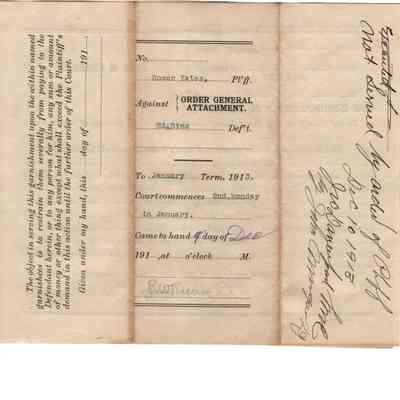 The object in serving this garnishment upon the within named
garnishees is to restrain them severally from paying to the
Defendant herein, or to any person for him, any sum or amount
of money or other thing except what shall exceed the Plaintiff's
demand in this action until the further order of this Court.
Given under my hand, this day of 191
No.
Susan Yates, Pl'ff.
Against { ORDER GENERAL
ATTACHMENT.
Def't.
To January Term, 1913.
Court commences 2nd. Monday
in January.
Came to hand 9 day of Dec
191 , at o'clock M.
Executed
not levied by order of Plff
Dec 10 191
By